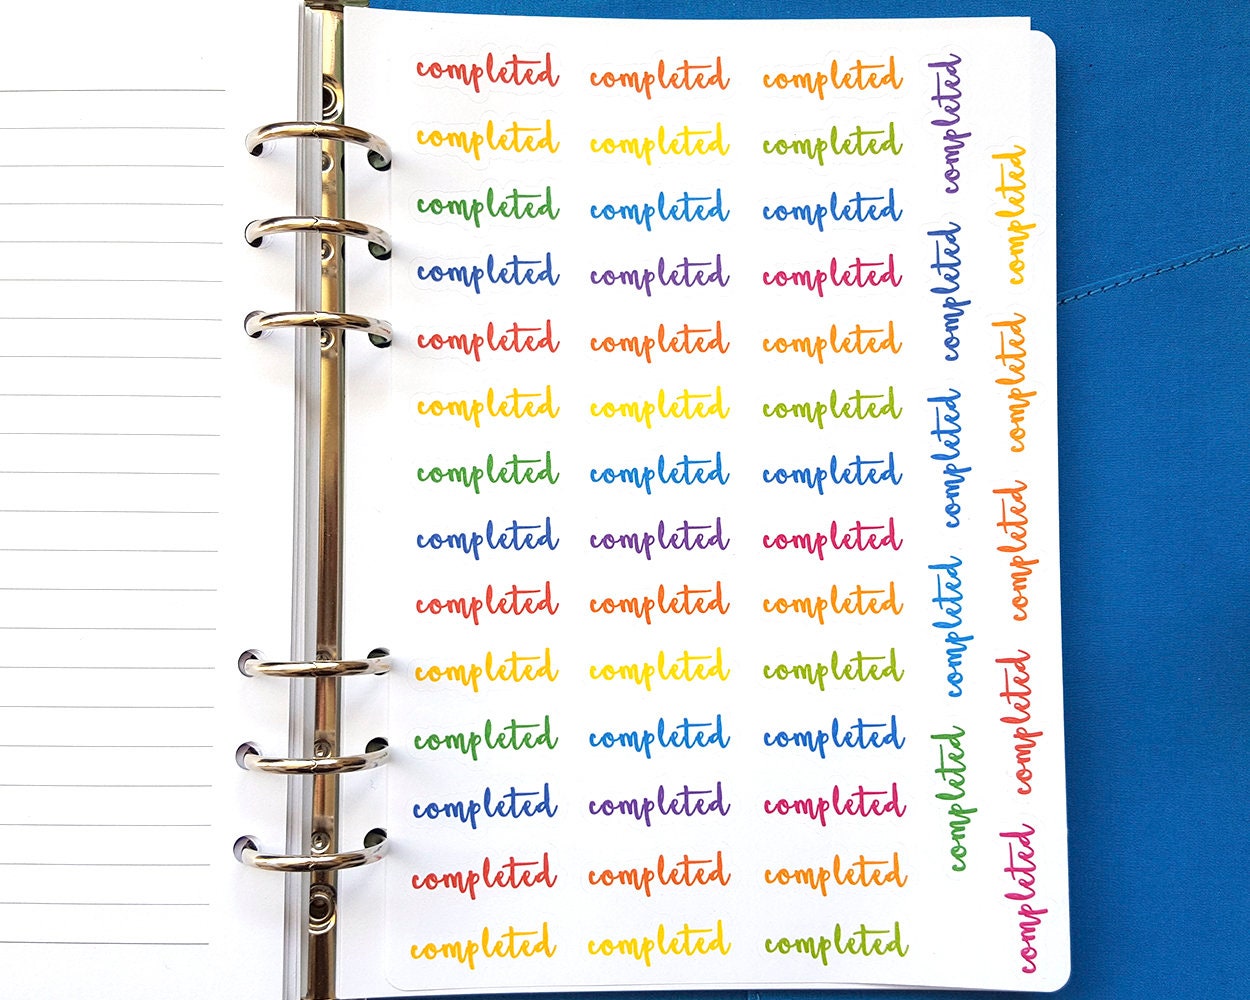 completed completed completed
completed completed completed
completed completed completed
completed completed completed
completed completed completed
completed completed completed
completed completed completed
completed completed completed
completed completed completed
completed completed completed
completed completed completed
completed completed completed
completed completed completed
completed completed completed
completed completed completed completed completed
completed completed completed completed completed